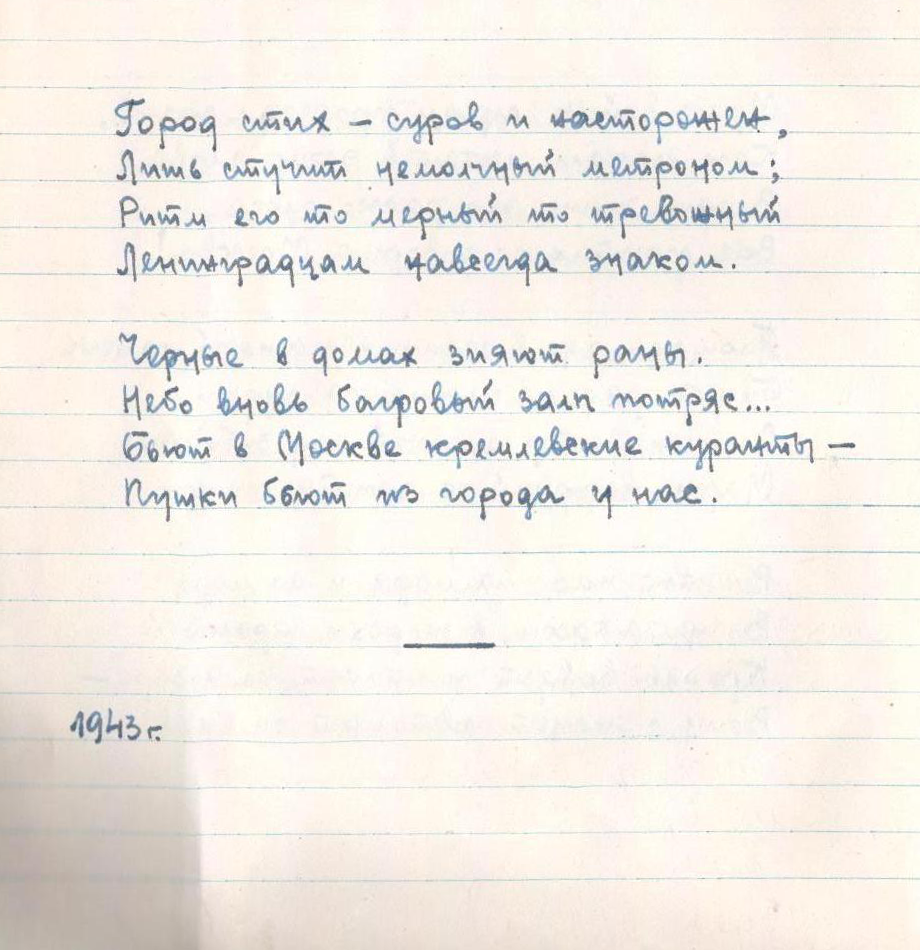 Город стих – суров и насторожен,
Лишь стучит немолчный метроном;
Ритм его то мерный то тревожный
Ленинградцам навсегда знаком.
Черные в домах зияют раны.
Небо вновь багровый залп потряс...
Бьют в Москве кремлевские куранты –
Пушки бьют из города у нас.
1943 г.